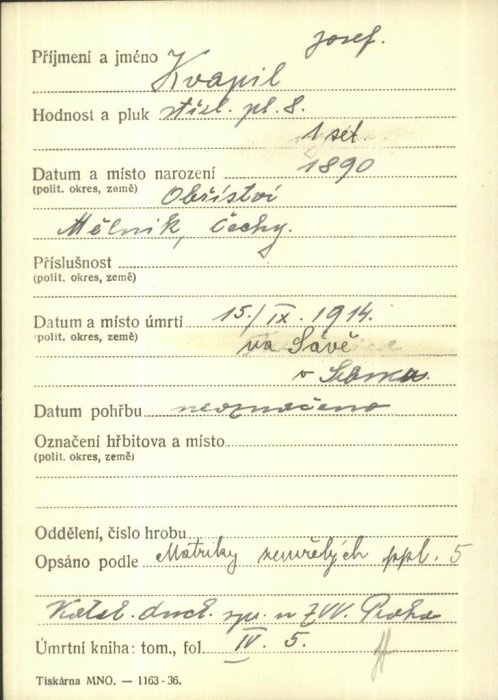 Josef.
Příjmení a jméno Kvapil
Hodnost a pluk střel. pl. 8.
1 set.
Datum a místo narození 1890
(polit. okres, země) Obříství
Mělník, Čechy.
Příslušnost
(polit. okres, země)
Datum a místo úmrtí 15./IX. 1914.
(polit. okres, země) na Sávě
v
Datum pohřbu neoznačeno
Označení hřbitova a místo
(polit. okres, země)
Oddělení, číslo hrobu
Opsáno podle Matriky zemřelých ppl. 5
Katol. duch. spr. u ZVV. Praha
Úmrtní kniha: tom., fol. IV. 5.
Tiskárna MNO. — 1163-36.